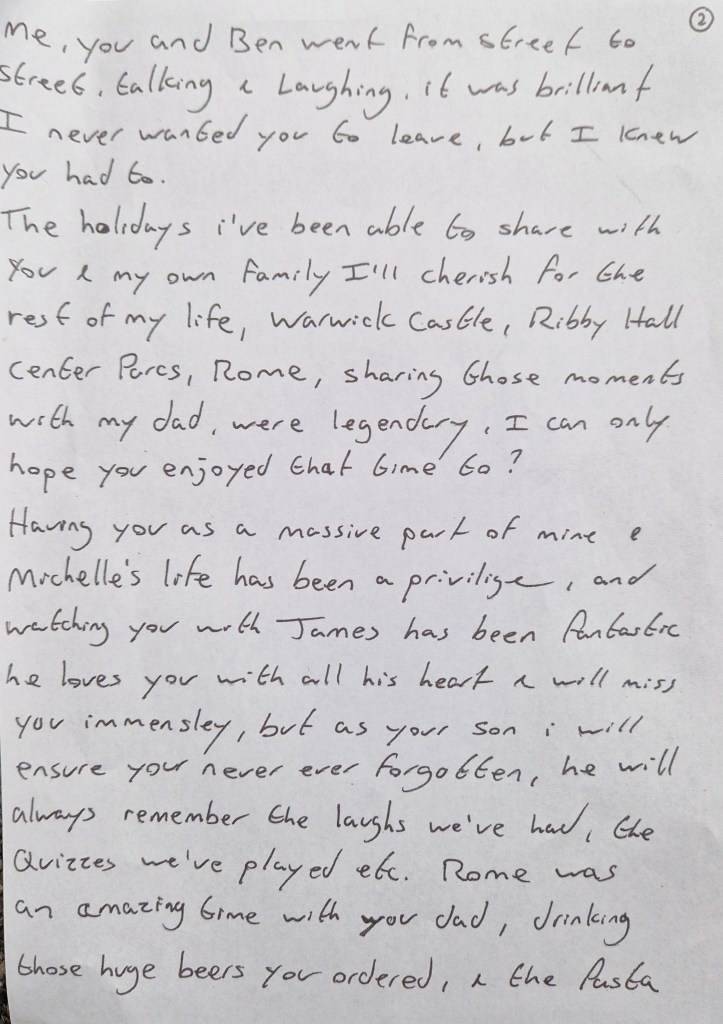 ②
Me, you and Ben went from street to
street, talking & Laughing, it was brilliant
I never wanted you to leave, but I knew
you had to.
The holidays i've been able to share with
you & my own family I'll cherish for the
rest of my life, Warwick Castle, Ribby Hall
Center Parcs, Rome, sharing those moments
with my dad, were legendary, I can only
hope you enjoyed that time to?
Having you as a massive part of mine &
Michelle's life has been a privilige, and
watching you with James has been fantastic
he loves you with all his heart & will miss
you immensley, but as your son i will
ensure your never ever forgotten, he will
always remember the laughs we've had, the
Quizzes we've played etc. Rome was
an amazing time with you dad, drinking
those huge beers you ordered, & the Pasta